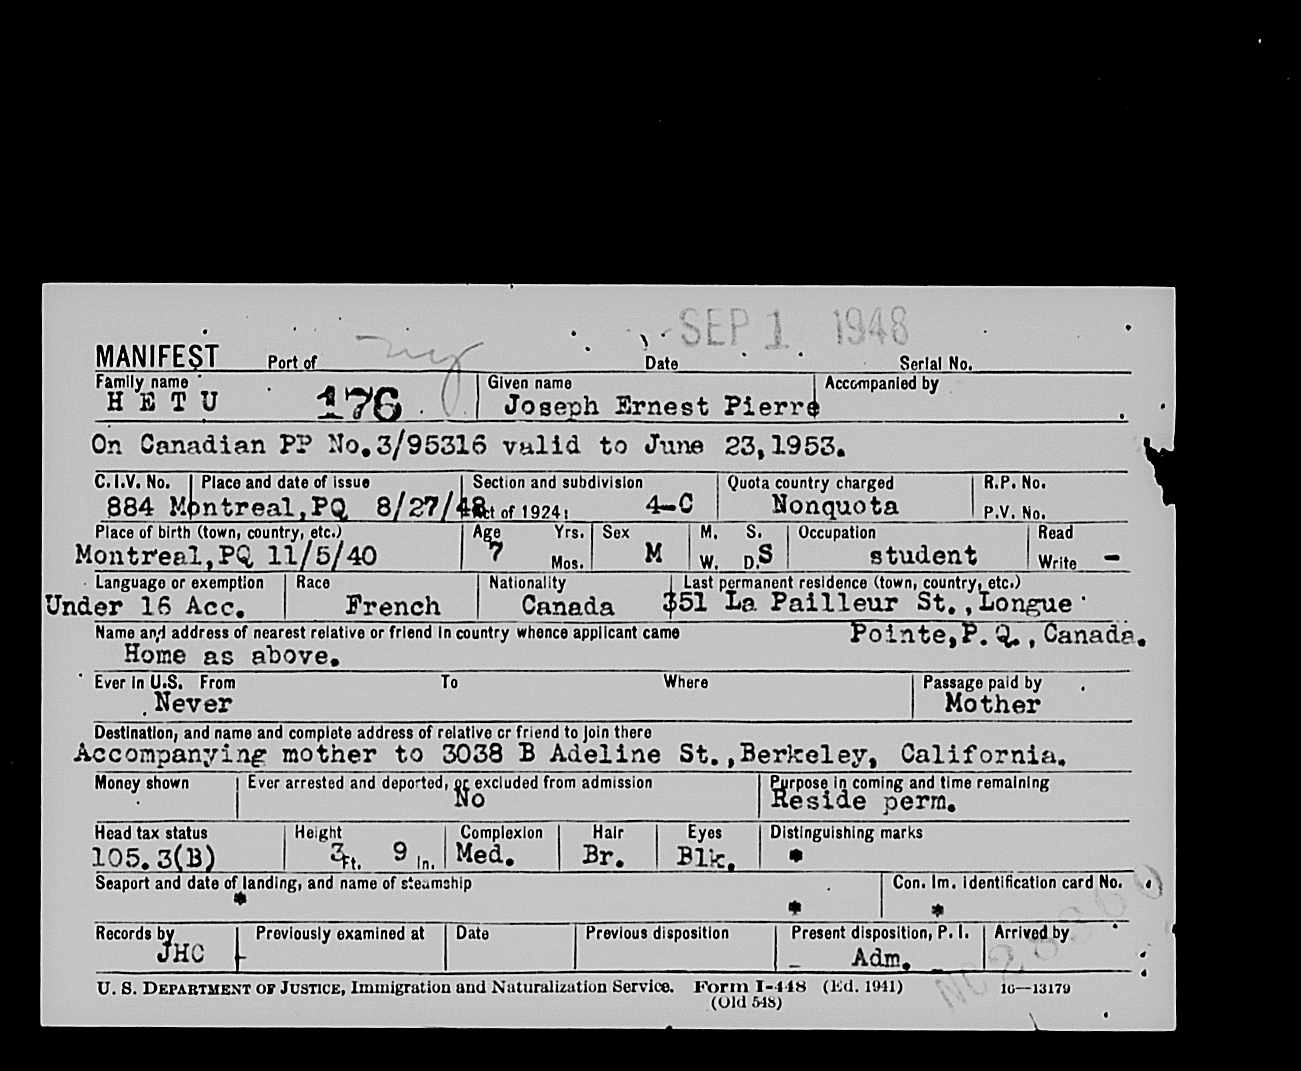 SEP 1 1948
MANIFEST Port of Date Serial No.
Family name Given name Accompanied by
H E T U 176 Joseph Ernest Pierre
On Canadian PP No.3/95316 valid to June 23,1953.
C.I.V. No. Place and date of issue Section and subdivision Quota country charged R.P. No.
884 Montreal,PQ 8/27/48 Act of 1924: 4-C Nonquota P.V. No.
Place of birth (town, country, etc.) Age Yrs. Sex M. S. Occupation Read
Montreal,PQ 11/5/40 7 Mos. M W. D. S student Write -
Language or exemption Race Nationality Last permanent residence (town, country, etc.)
Under 16 Acc. French Canada 351 La Pailleur St.,Longue
Name and address of nearest relative or friend in country whence applicant came Pointe,P.Q.,Canada.
Home as above.
Ever in U.S. From To Where Passage paid by
Never Mother
Destination, and name and complete address of relative or friend to join there
Accompanying mother to 3038 B Adeline St.,Berkeley, California.
Money shown Ever arrested and deported, or excluded from admission Purpose in coming and time remaining
No Reside perm.
Head tax status Height Complexion Hair Eyes Distinguishing marks
105.3(B) 3 Ft. 9 In. Med. Br. Blk. *
Seaport and date of landing, and name of steamship Con. Im. identification card No.
* * *
Records by Previously examined at Date Previous disposition Present disposition, P. I. Arrived by
JHC Adm.
U. S. DEPARTMENT OF JUSTICE, Immigration and Naturalization Service. Form I-448 (Ed. 1941) 16—13179
(Old 548)